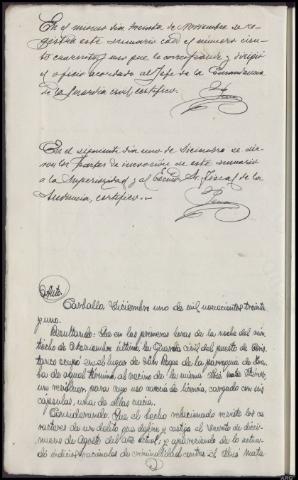 En el mismo día treinta de Noviembre se re-
gistró este sumario con el número cien-
to cuarenta y uno que le corresponde y dirigió
el oficio acordado al Jefe de la Comandancia
de la Guardia civil, certifico.
En el siguiente día uno de Diciembre se die-
ron los partes de incoación de este sumario
a la Superioridad y al Excmo. Sr. Fiscal de la
Audiencia, certifico.-
Auto.
Carballo, Diciembre uno de mil novecientos treinta
y uno.
Resultando: Que en las primeras horas de la noche del vein-
tiocho de Noviembre último, la Guardia Civil del puesto de
ocupó en el lugar de San Roque de la parroquia de
de aquel término, al vecino de la misma José
un revólver, para cuyo uso carecía de licencia, cargado con seis
cápsulas, una de ellas vacía.
Considerando: Que el hecho relacionado reviste los ca-
racteres de un delito que define y castiga el
de Agosto del año actual, y apareciendo de lo actua-
do indicios racionales de criminalidad contra el José